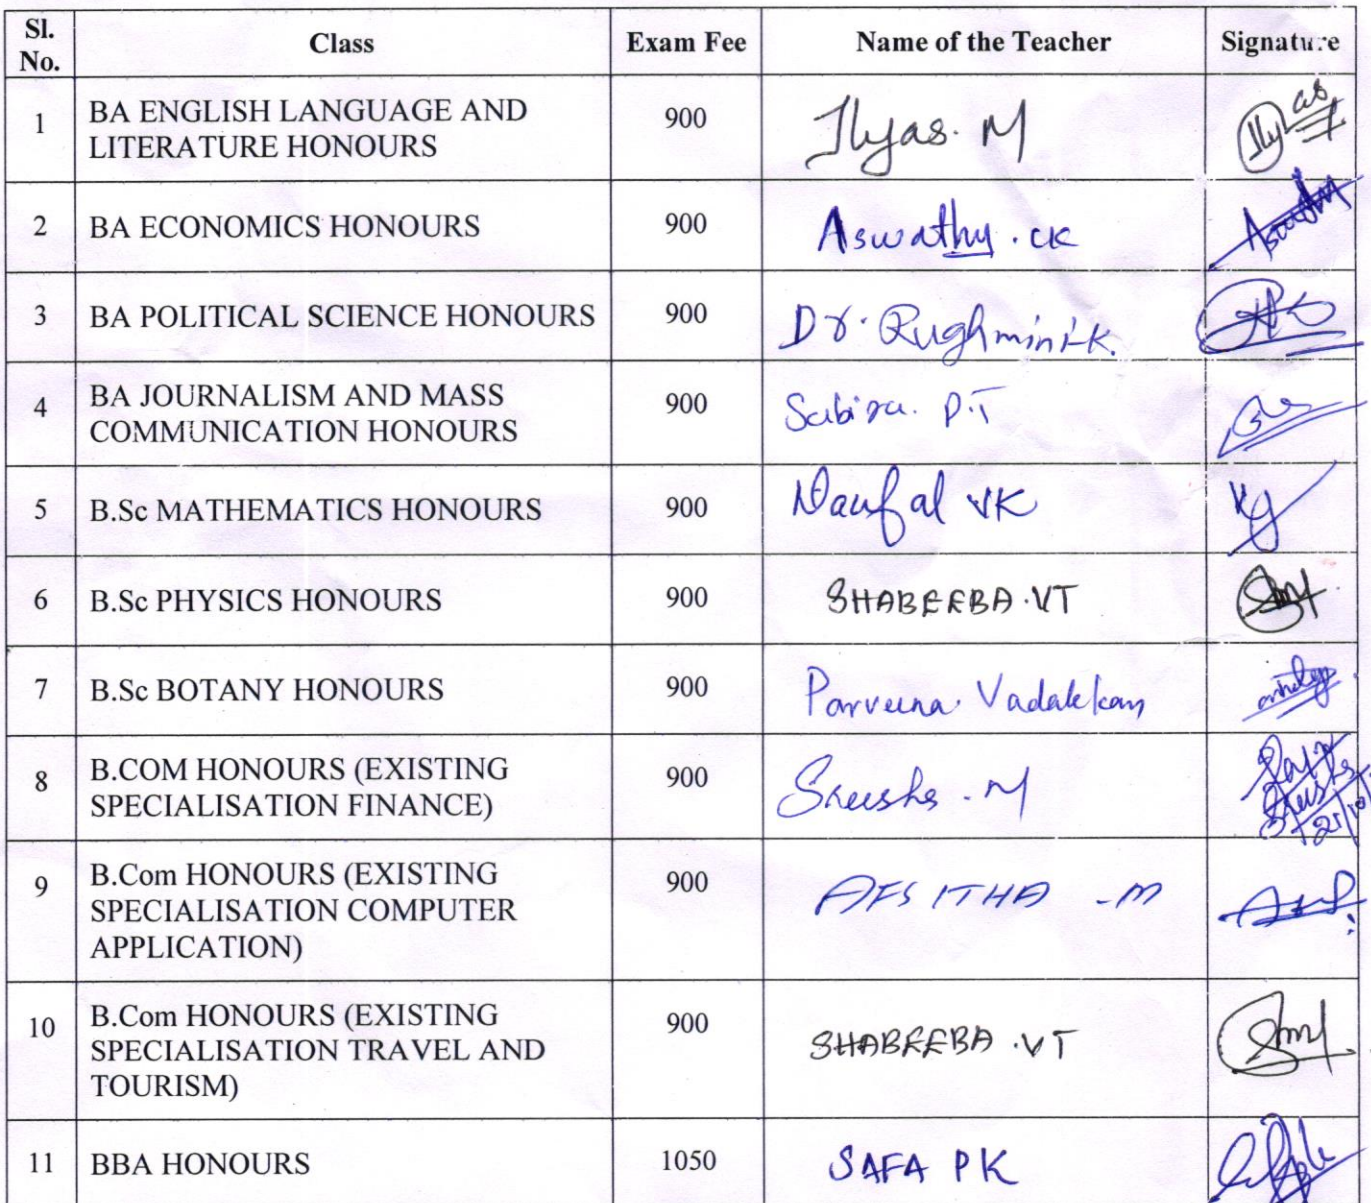 Sl. No. Class Exam Fee Name of the Teacher Signature
1 BA ENGLISH LANGUAGE AND LITERATURE HONOURS 900 Ilyas. M Ilyas
2 BA ECONOMICS HONOURS 900 Aswathy. CK
3 BA POLITICAL SCIENCE HONOURS 900 Dr. Rughmini.K.
4 BA JOURNALISM AND MASS COMMUNICATION HONOURS 900 Sabira. P.T
5 B.Sc MATHEMATICS HONOURS 900 Naufal VK
6 B.Sc PHYSICS HONOURS 900 SHABEEBA.VT
7 B.Sc BOTANY HONOURS 900 Parveena. Vadakkan
8 B.COM HONOURS (EXISTING SPECIALISATION FINANCE) 900 M
9 B.Com HONOURS (EXISTING SPECIALISATION COMPUTER APPLICATION) 900 AFSITHA -M
10 B.Com HONOURS (EXISTING SPECIALISATION TRAVEL AND TOURISM) 900 SHABEEBA.VT
11 BBA HONOURS 1050 SAFA PK